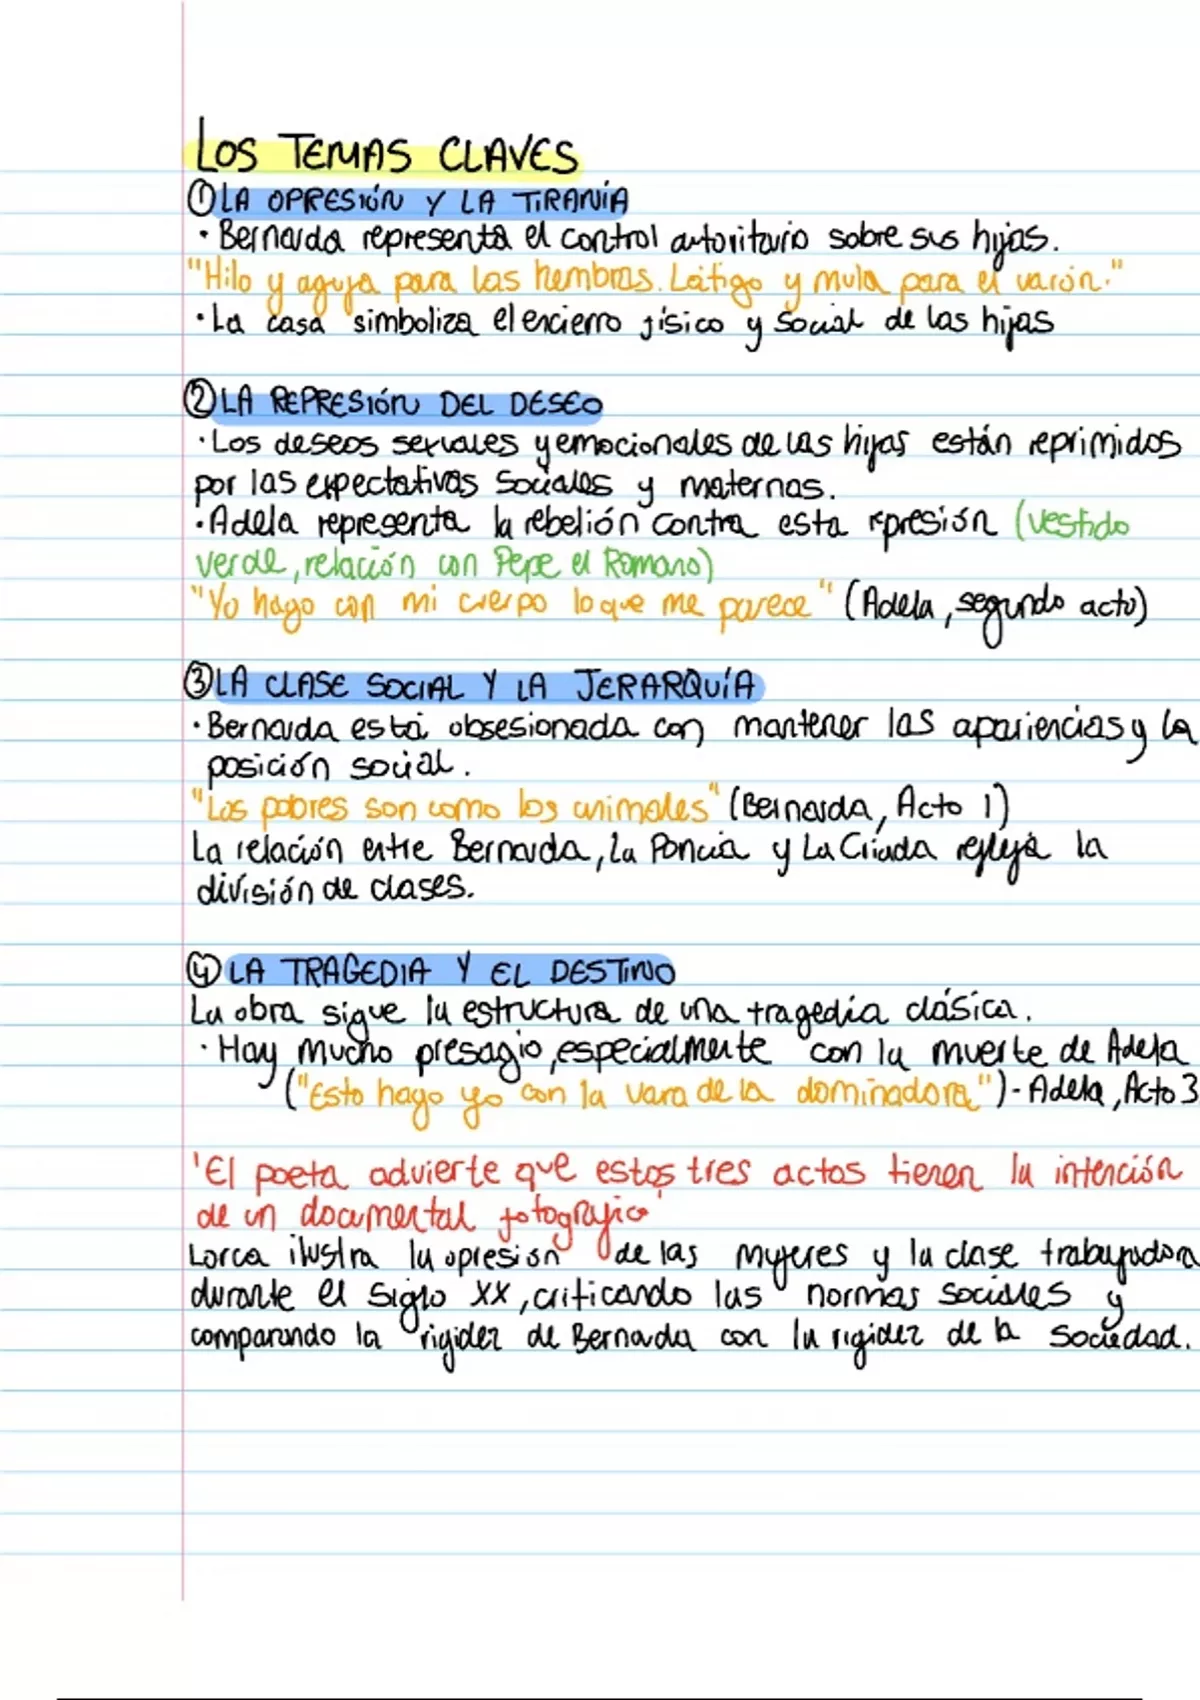 LOS TEMAS CLAVES
① LA OPRESIÓN Y LA TIRANÍA
• Bernarda representa el control autoritario sobre sus hijas.
"Hilo y aguja para las hembras. Látigo y mula para el varón."
• La casa simboliza el encierro físico y social de las hijas
② LA REPRESIÓN DEL DESEO
• Los deseos sexuales y emocionales de las hijas están reprimidos
por las expectativas sociales y maternas.
• Adela representa la rebelión contra esta represión (vestido
verde, relación con Pepe el Romano)
"Yo hago con mi cuerpo lo que me parece" (Adela, segundo acto)
③ LA CLASE SOCIAL Y LA JERARQUÍA
• Bernarda está obsesionada con mantener las apariencias y la
posición social.
"Los pobres son como los animales" (Bernarda, Acto 1)
La relación entre Bernarda, La Poncia y La Criada refleja la
división de clases.
④ LA TRAGEDIA Y EL DESTINO
La obra sigue la estructura de una tragedia clásica.
• Hay mucho presagio, especialmente con la muerte de Adela
("Esto hago yo con la vara de la dominadora") - Adela, Acto 3
'El poeta advierte que estos tres actos tienen la intención
de un documental fotográfico'
Lorca ilustra la opresión de las mujeres y la clase trabajadora
durante el siglo XX, criticando las normas sociales y
comparando la rigidez de Bernarda con la rigidez de la sociedad.